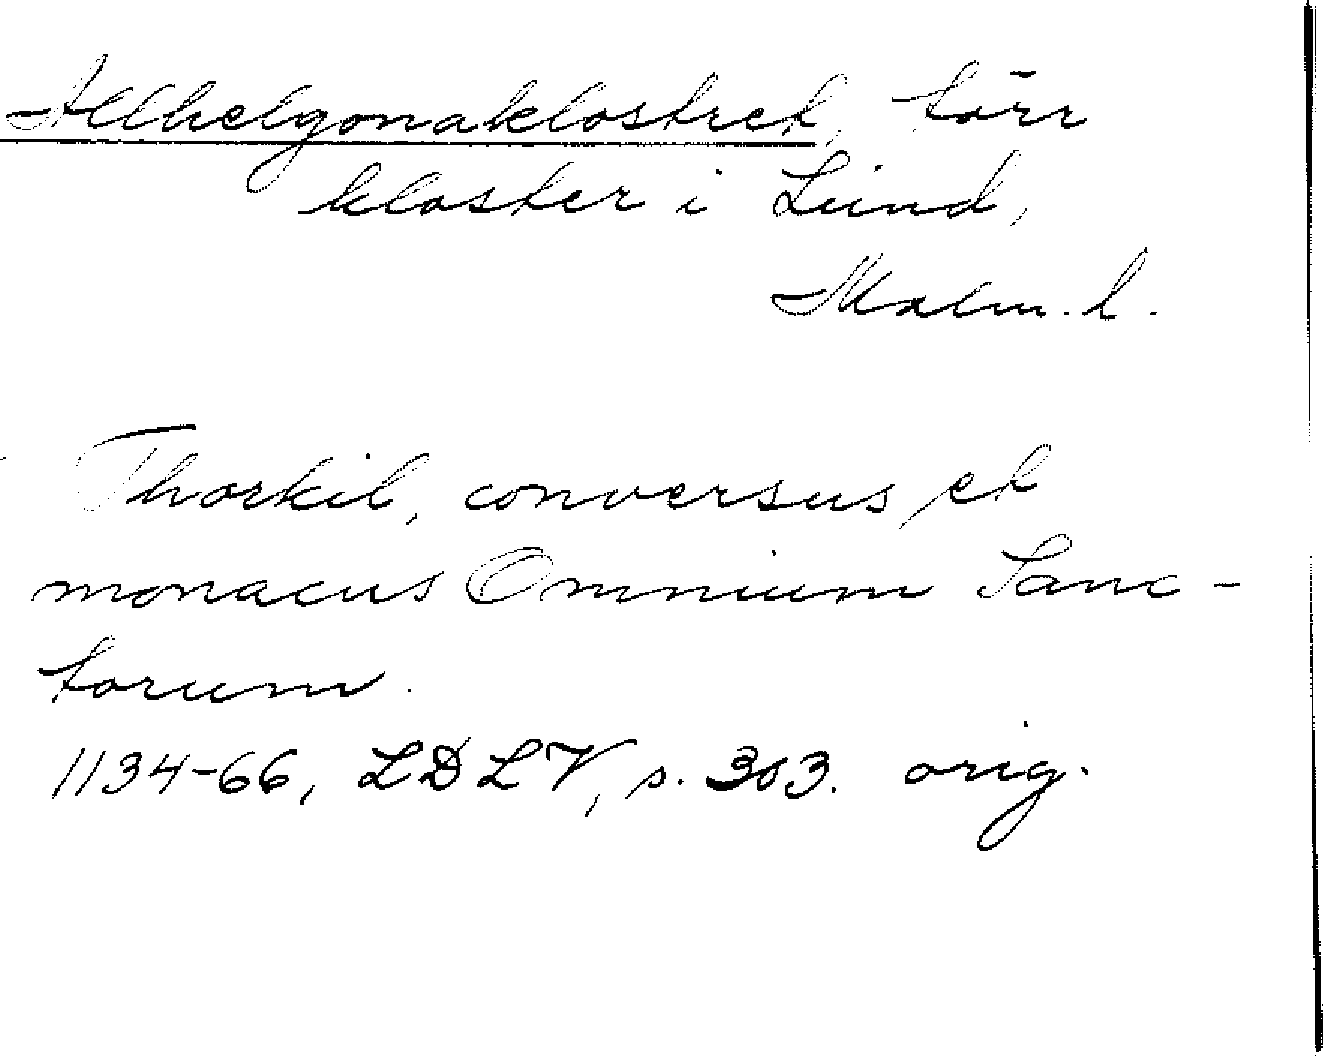 Allhelgonaklostret, förr
kloster i Lund,
Malm. l.
Thorkil, conversus et
monacus Omnium Sanc-
torum.
1134-66, LDLV, s. 303. orig.